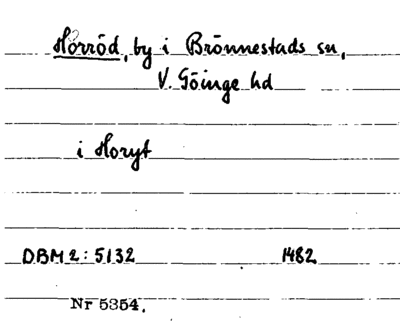 Hörröd, by i Brönnestads sn,
V. Göinge hd
i Horyt
DBM 2: 5132 1482
Nr 5354.